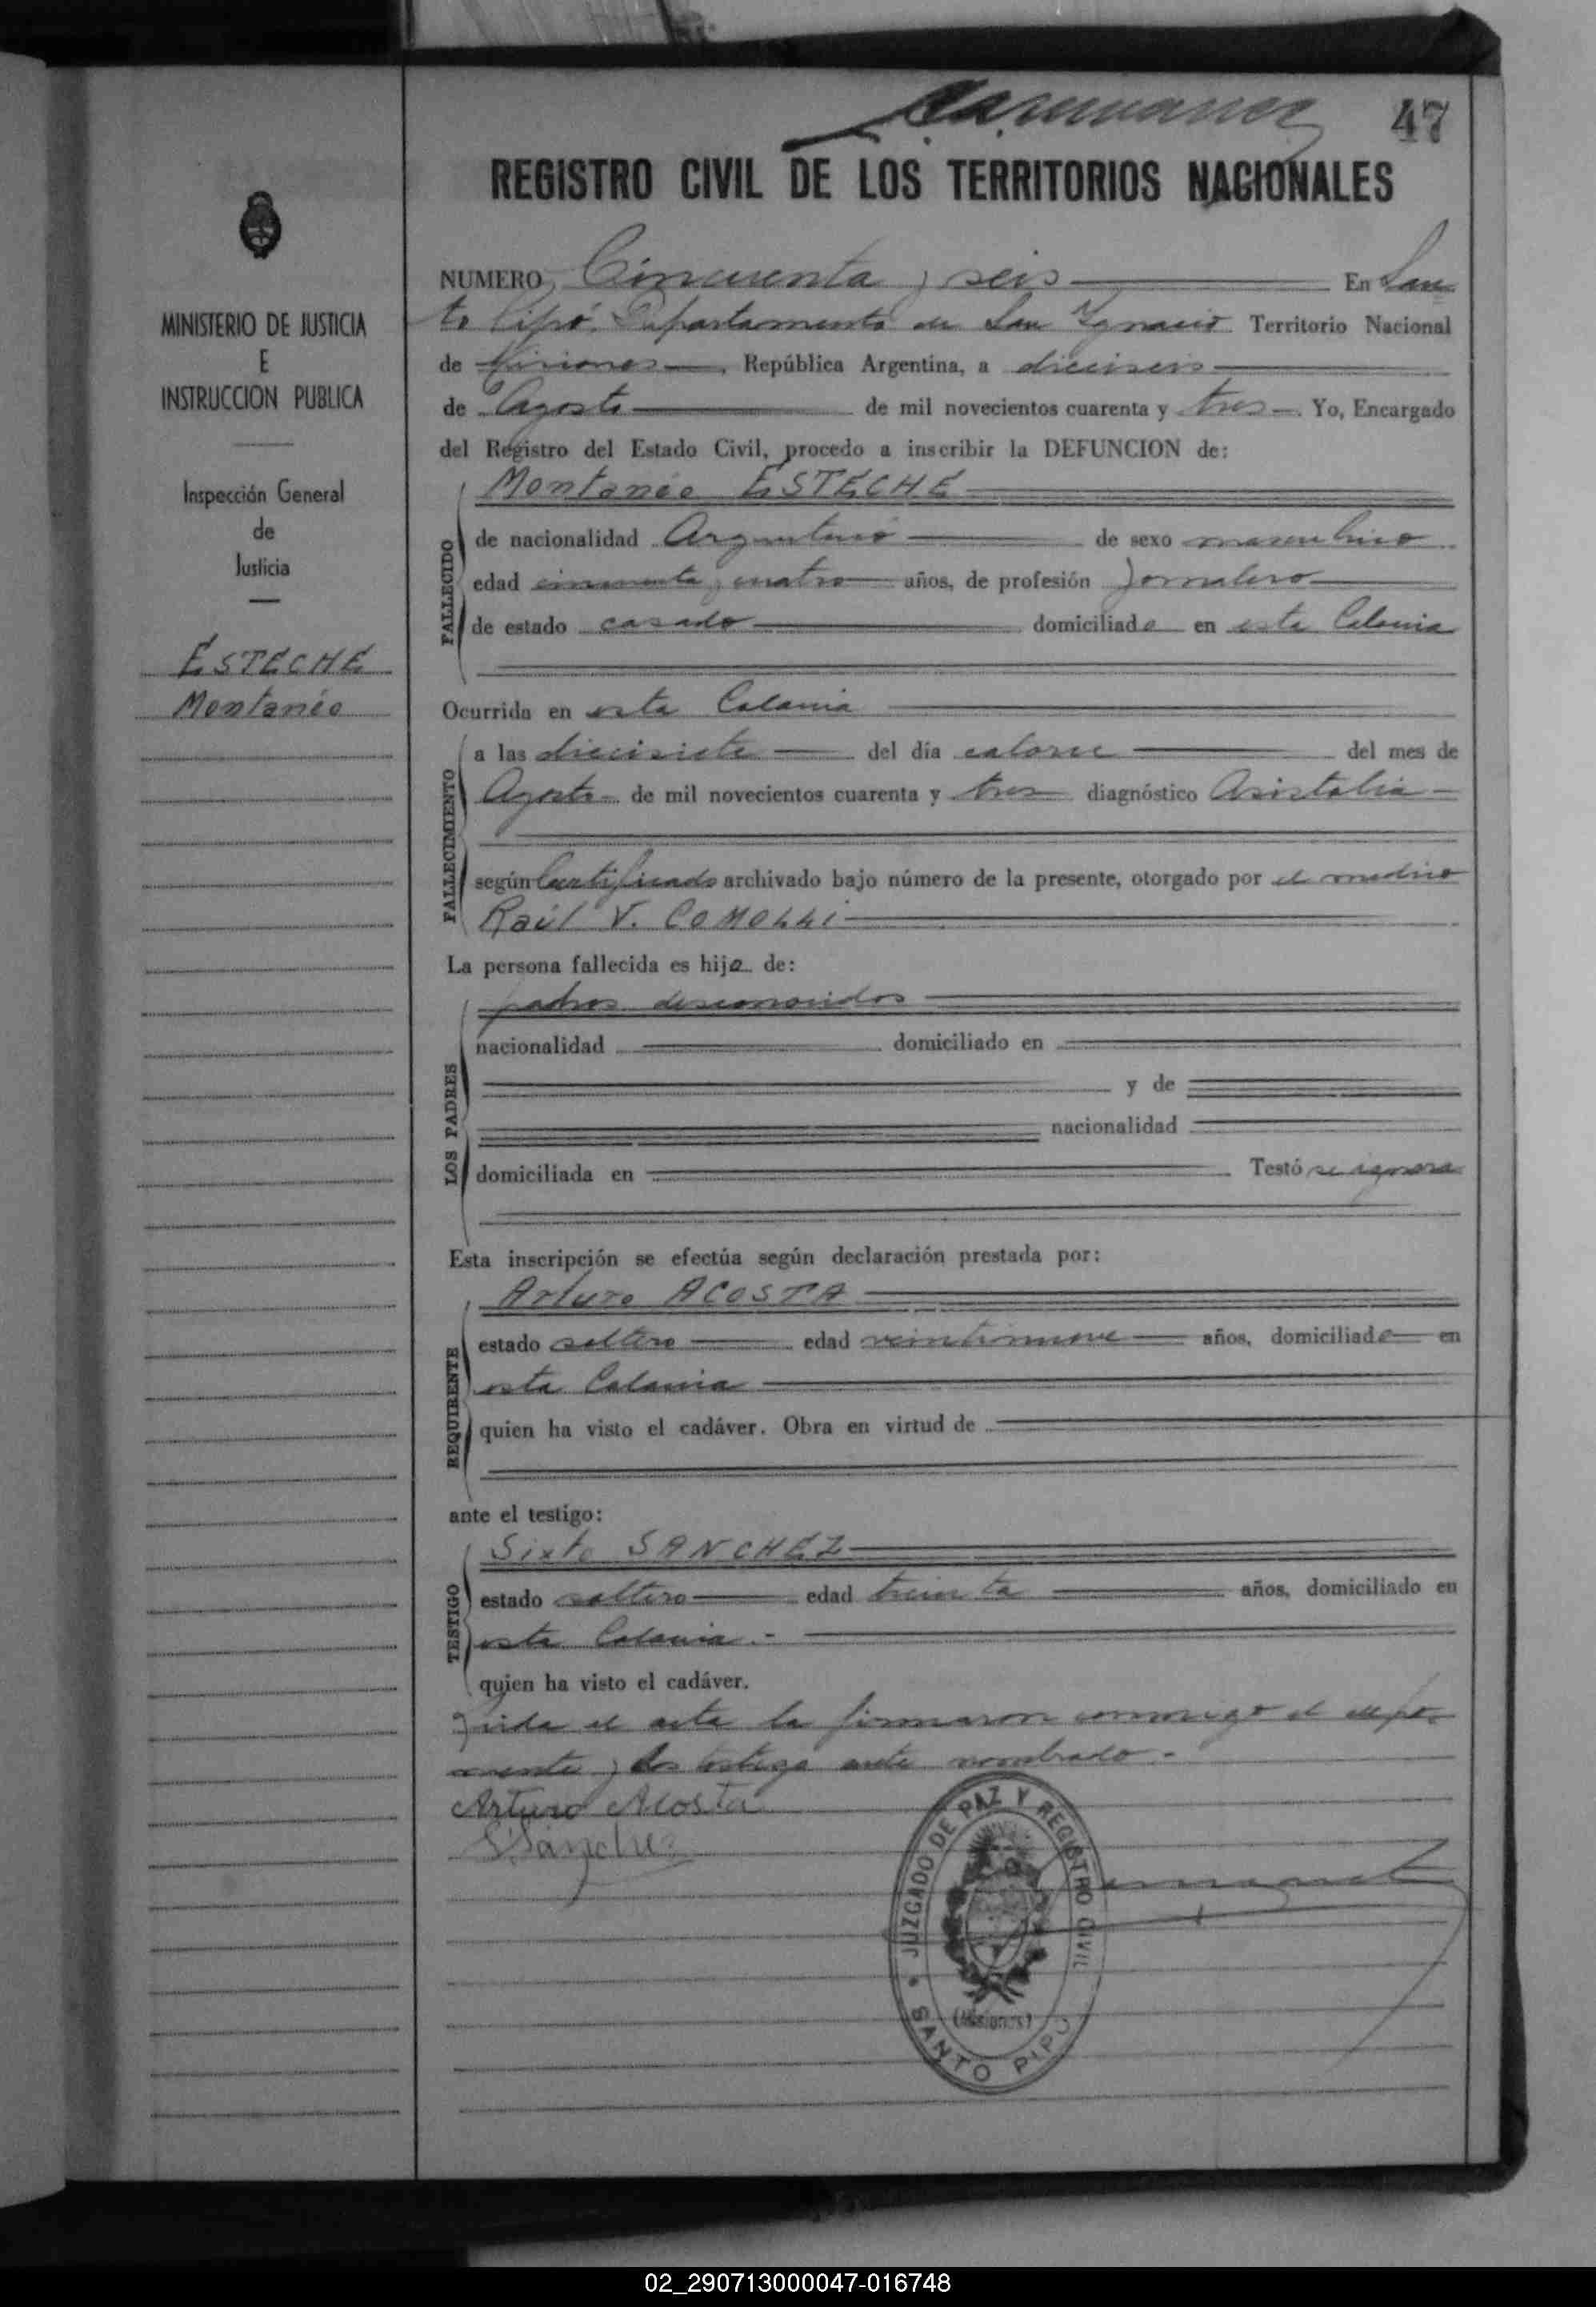 47
REGISTRO CIVIL DE LOS TERRITORIOS NACIONALES
MINISTERIO DE JUSTICIA
E
INSTRUCCION PUBLICA
Inspección General
de
Justicia
ESTECHE
Montanéo
NUMERO Cincuenta y seis En San
to Pipó, Departamento de San Ygnacio Territorio Nacional
de Misiones, República Argentina, a dieciseis
de Agosto de mil novecientos cuarenta y tres. Yo, Encargado
del Registro del Estado Civil, procedo a inscribir la DEFUNCION de:
Montanéo ESTECHE
FALLECIDO
de nacionalidad Argentino de sexo masculino
edad cincuenta y cuatro años, de profesión Jornalero
de estado casado domiciliado en esta Colonia
Ocurrida en esta Colonia
FALLECIMIENTO
a las diecisiete del día catorce del mes de
Agosto de mil novecientos cuarenta y tres diagnóstico
según Certificado archivado bajo número de la presente, otorgado por el medico
Raúl V. COMOLLI
La persona fallecida es hijo de:
LOS PADRES
padres desconocidos
nacionalidad domiciliado en
y de
nacionalidad
domiciliada en Testó se ignora
Esta inscripción se efectúa según declaración prestada por:
REQUIRENTE
Arturo ACOSTA
estado soltero edad veintinueve años, domiciliado en
esta Colonia
quien ha visto el cadáver. Obra en virtud de
ante el testigo:
TESTIGO
Sixto SANCHEZ
estado soltero edad treinta años, domiciliado en
esta Colonia.-
quien ha visto el cadáver.
Leida el acta la firmaron conmigo el expo-
nente y los testigo ante nombrado.-
Arturo Acosta
S. Sánchez
JUZGADO DE PAZ Y REGISTRO CIVIL
(Misiones)
SANTO PIPO
02_290713000047-016748